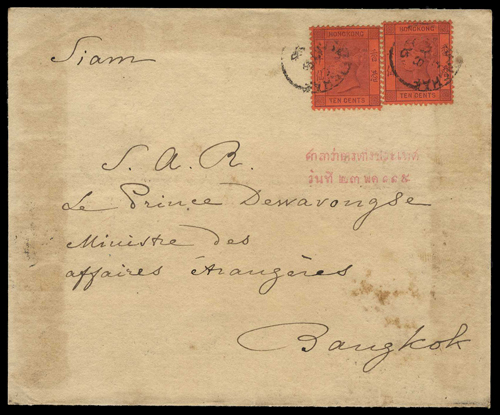 Siam
HONGKONG
TEN CENTS
HONGKONG
TEN CENTS
S. A. R.
ศาลาว่าการต่างประเทศ
วันที่
Le Prince Dewavongse
Ministre des
affaires étrangères
Bangkok